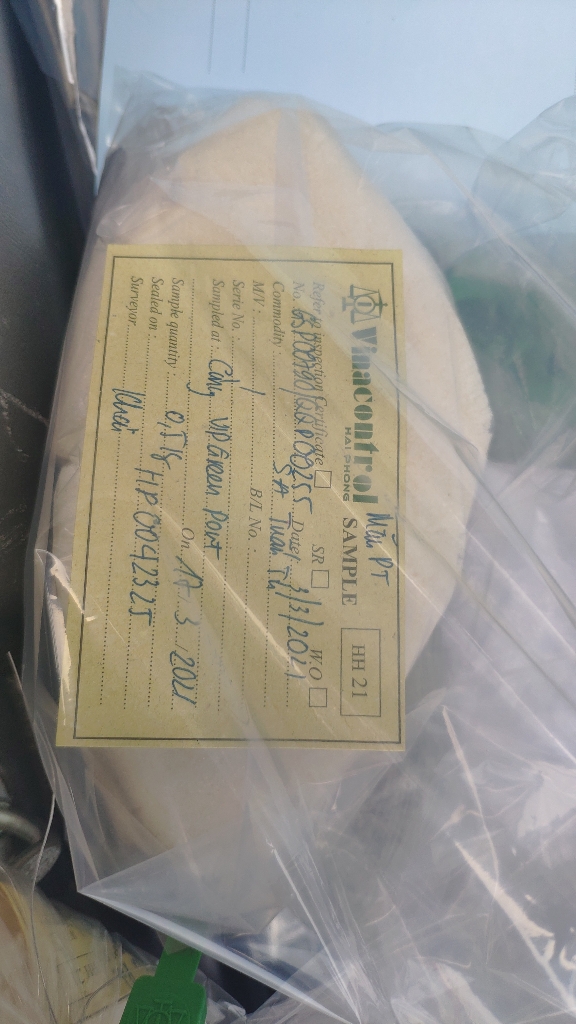 Vinacontrol
HAI PHONG
SAMPLE
Mẫu PT
HH 21
Refer to Inspection Certificate SR W.O
No. Date: 3/3/2021
Commodity:
M/V: / B/L No.:
Serie No.
Sampled at: Cảng VIP Green Port
On 17.3.2021
Sample quantity: 0,5 kg
Sealed on: HP 00423.25
Surveyor. Khải